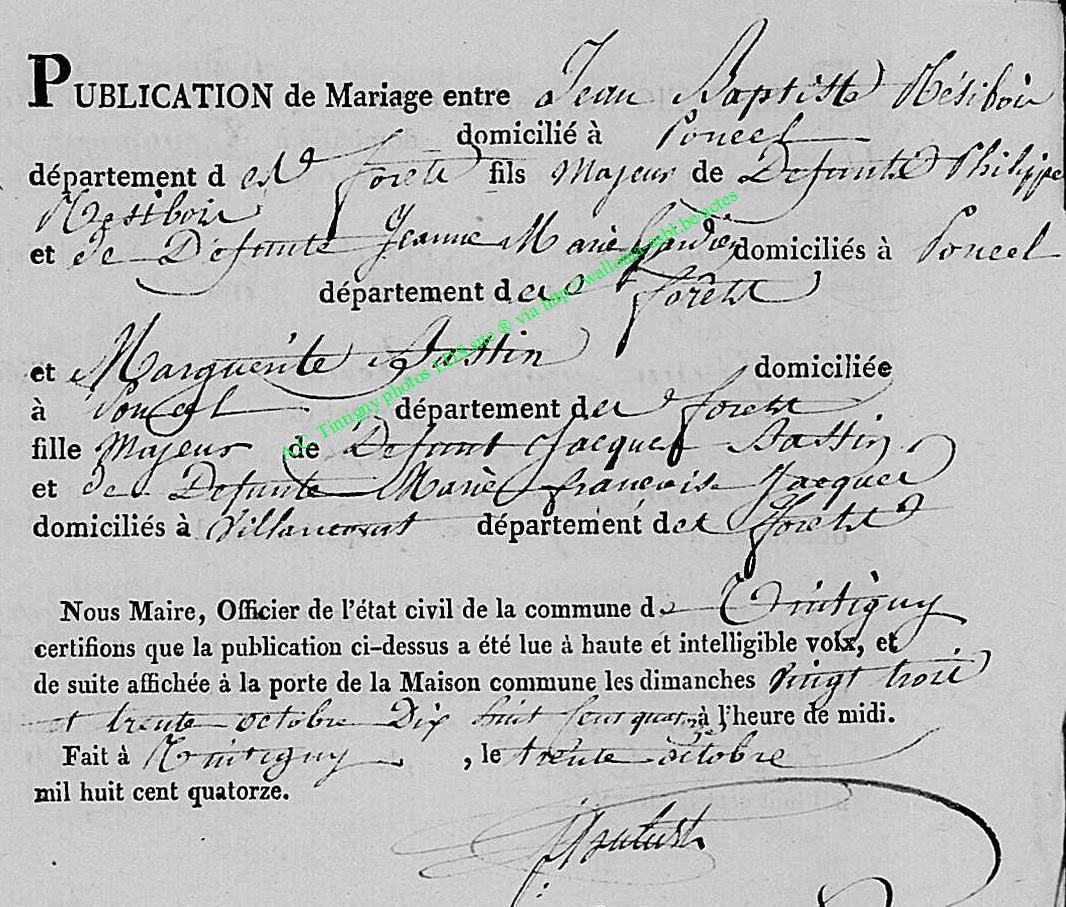 PUBLICATION de Mariage entre Jean Baptiste Résiboix
domicilié à Poncel
département des forets fils Majeur de Defunte Philippe
Resiboix
et de Defunte Jeanne Marie domiciliés à Poncel
département des forêts
et Marguerite Bastin domiciliée
à Poncel département des forets
fille Majeur de Defunt Jacques Bastin
et de Defunte Marie françoise Jacques
domiciliés à Villancourt département des forets
Nous Maire, Officier de l'état civil de la commune de Tintigny
certifions que la publication ci-dessus a été lue à haute et intelligible voix, et
de suite affichée à la porte de la Maison commune les dimanches vingt trois
et trente octobre Dix huit Cent quatorze à l'heure de midi.
Fait à Tintigny , le trente octobre
mil huit cent quatorze.
A.C. Tintigny photos LDS site ® via http://wallonia-asbl.be/actes